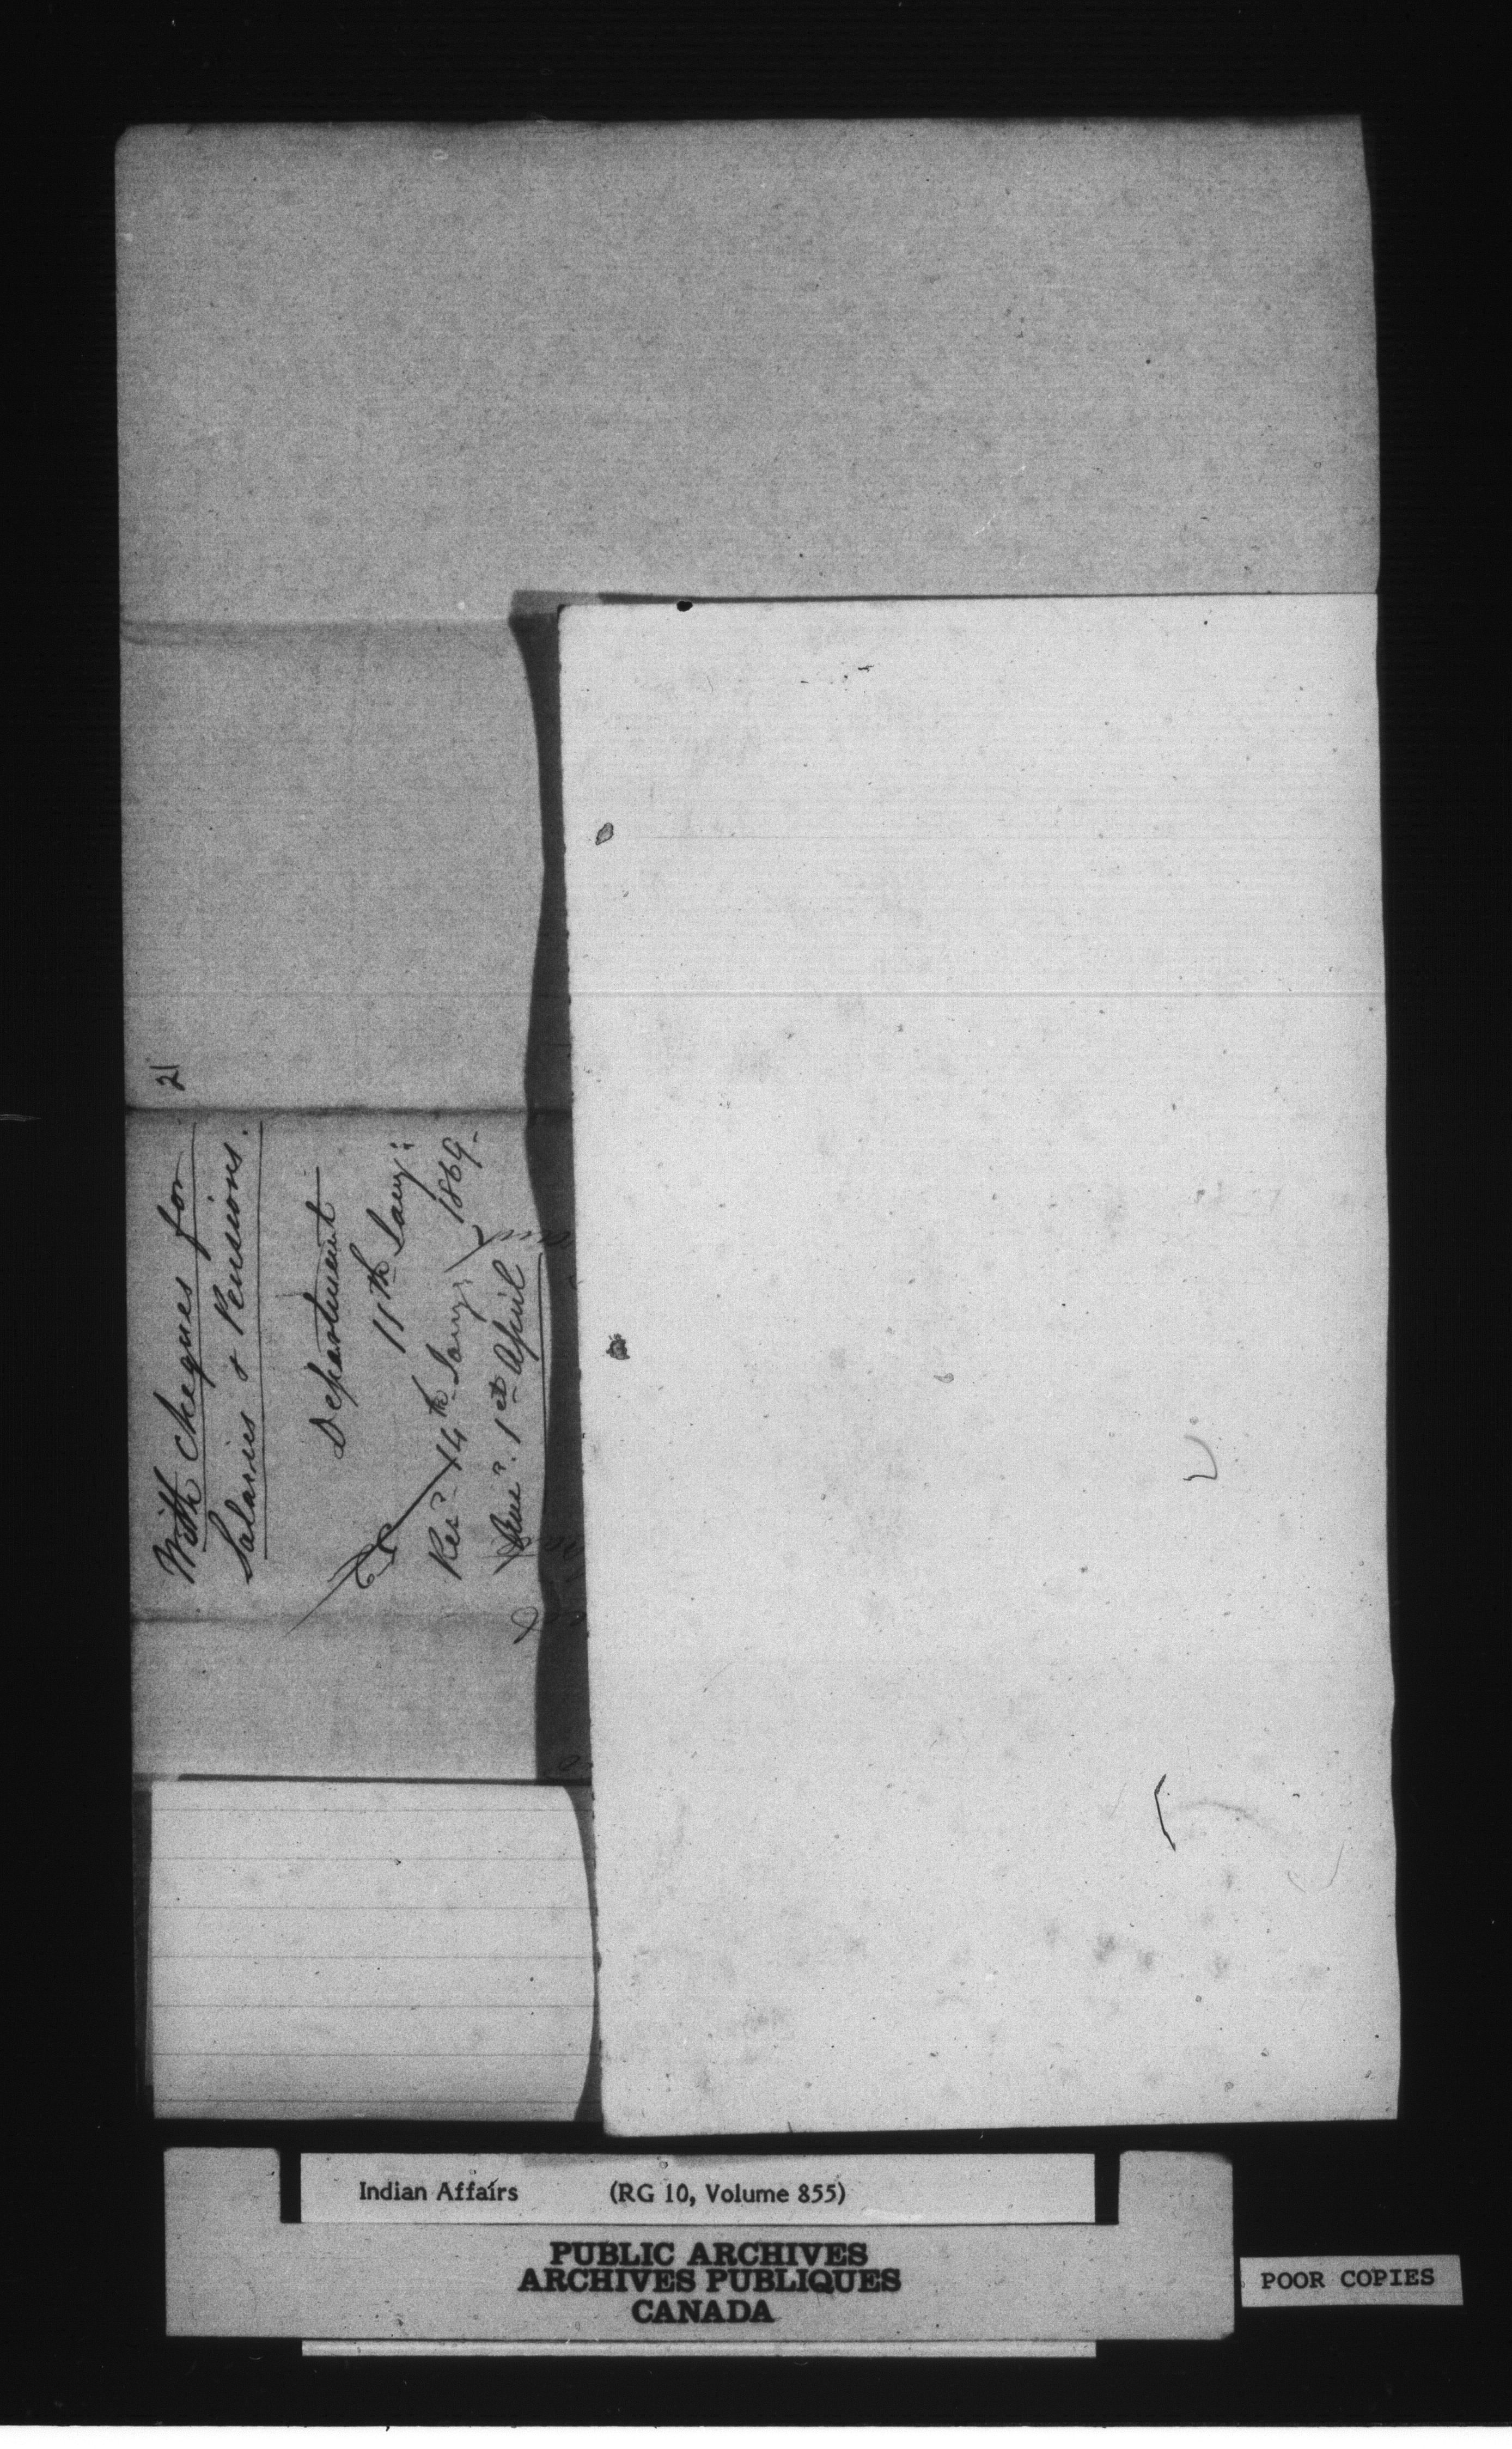 21
With Cheques for
Salaries & Pensions.
Department
11th Jany:
Recd 14th Jany: 1869-
1st April
Indian Affairs (RG 10, Volume 855)
PUBLIC ARCHIVES
ARCHIVES PUBLIQUES
CANADA
POOR COPIES